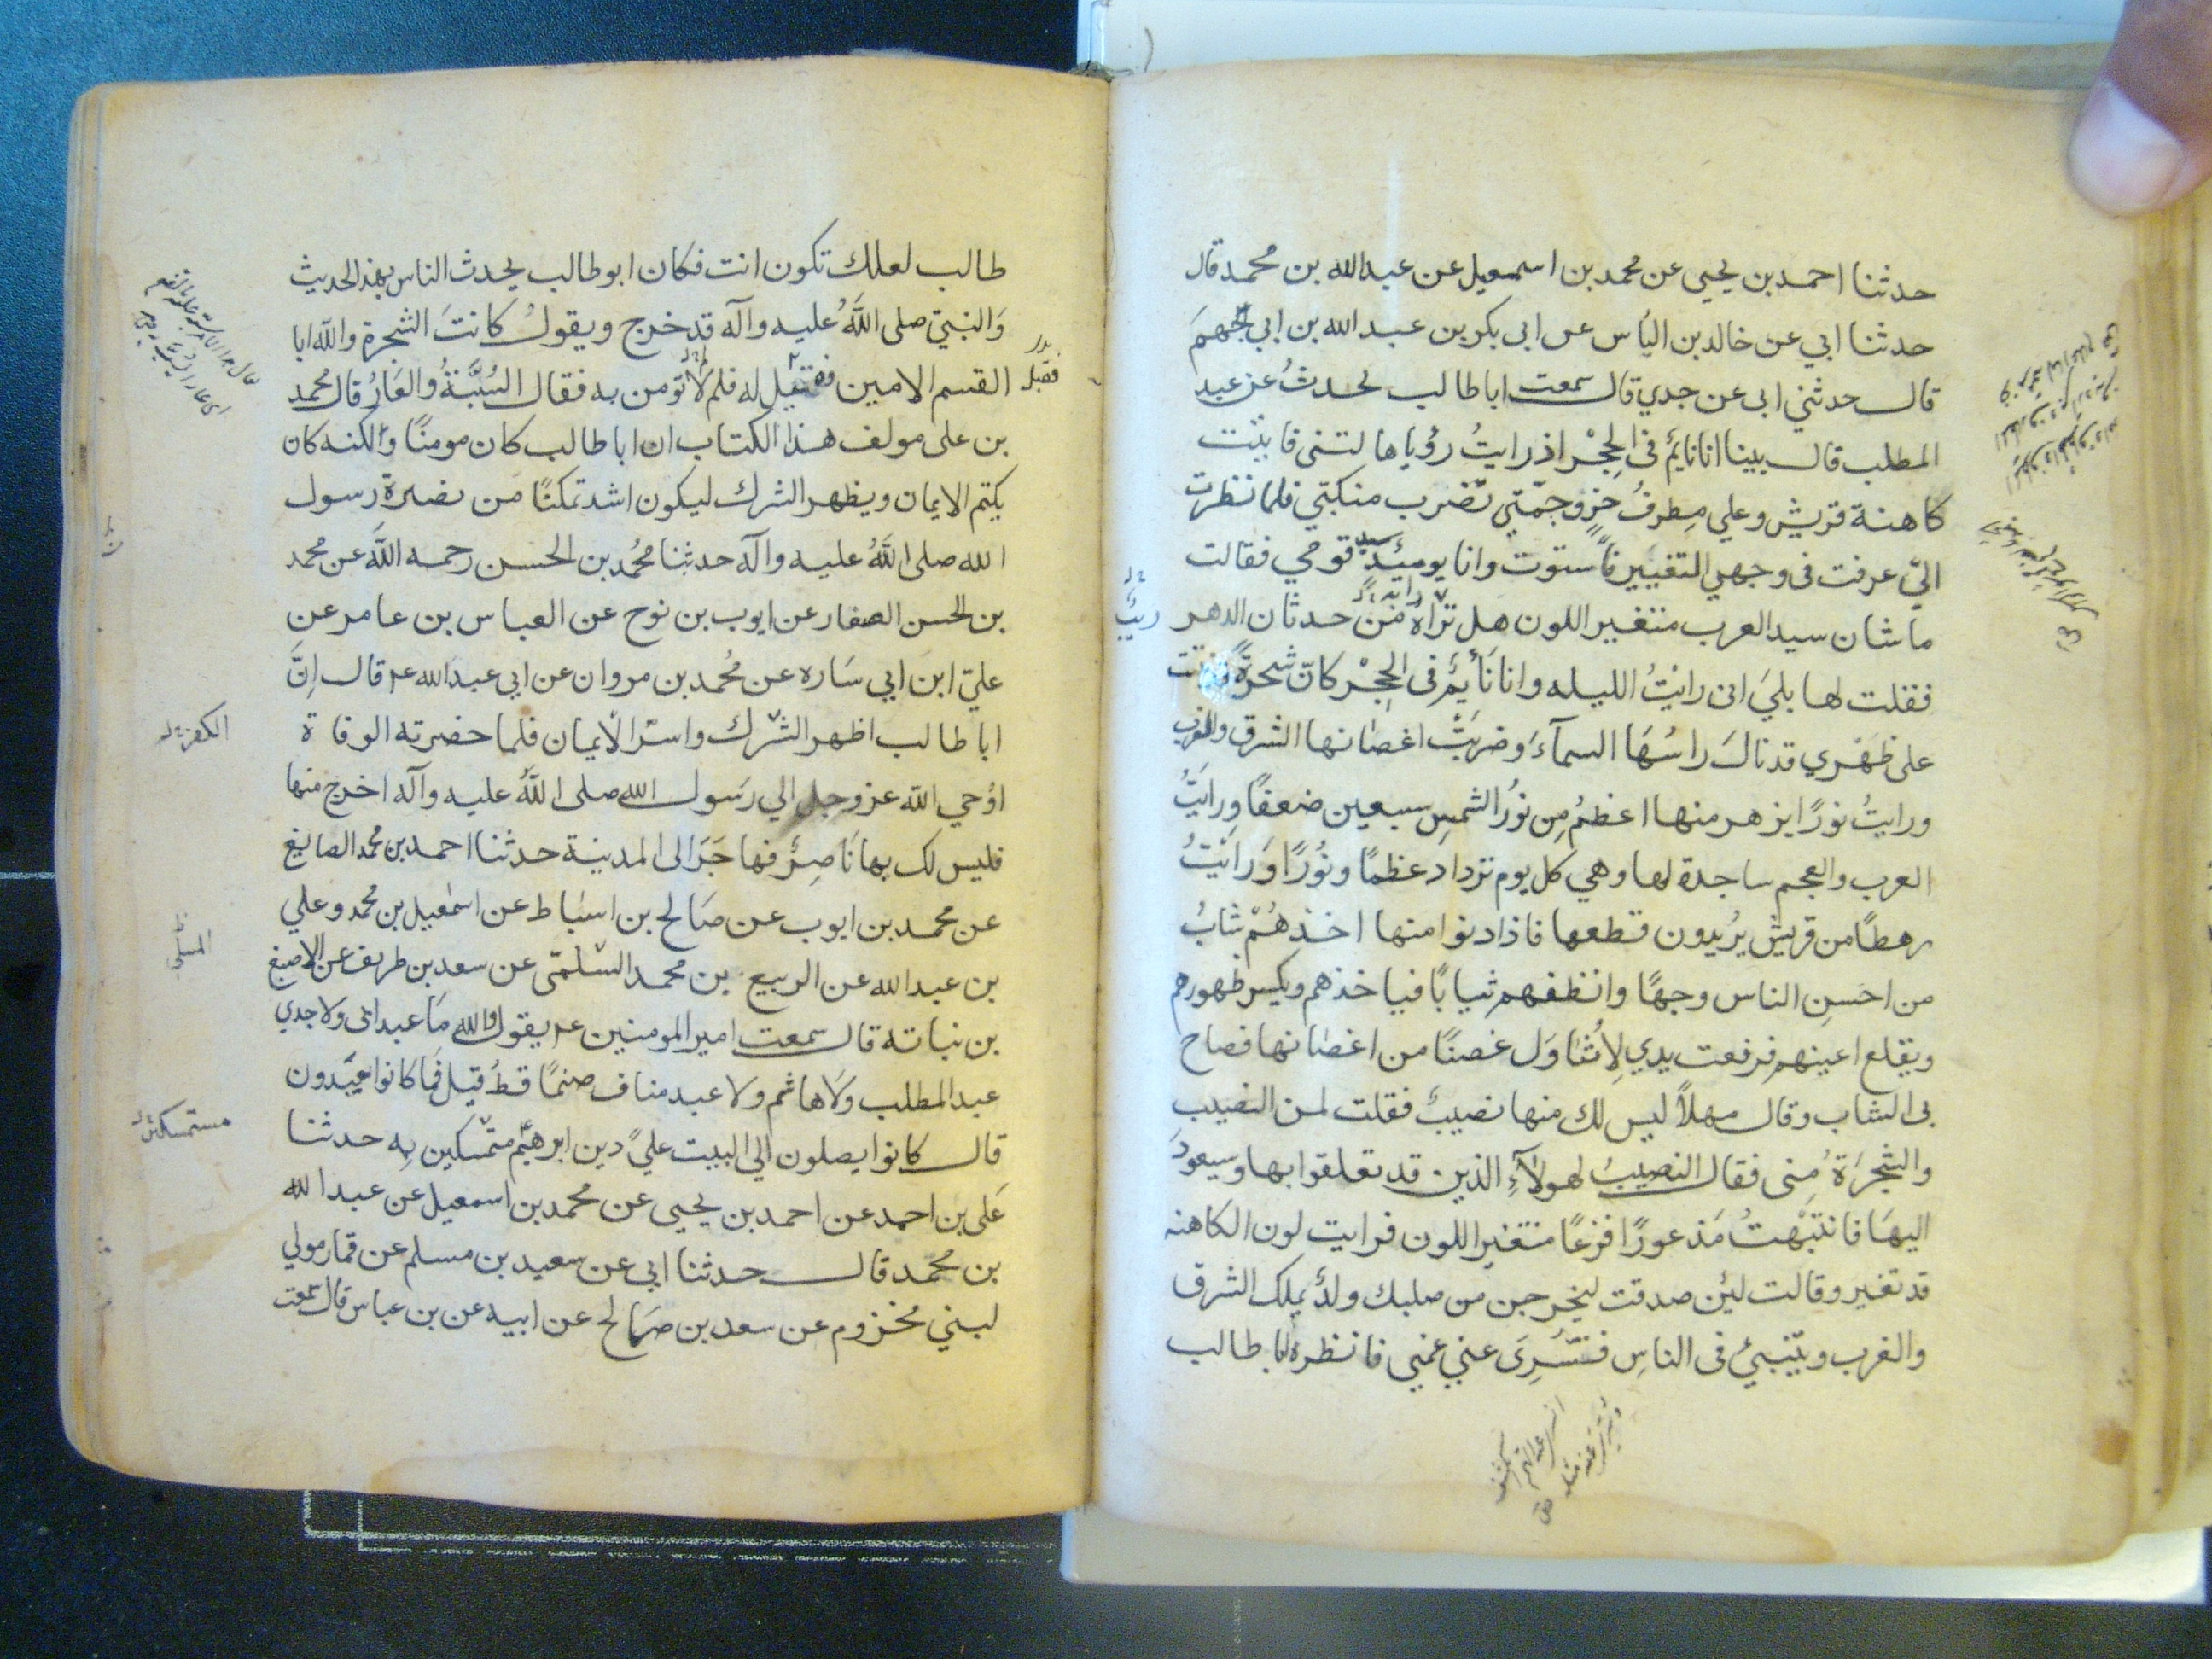 حدثنا احمد بن يحيى عن محمد بن اسمعيل عن عبد الله بن محمد قال
حدثنا ابي عن خالد بن الياس عن ابى بكر بن عبد الله بن ابي جهم
قال حدثني ابى عن جدي قال سمعت ابا طالب يحدث عن عبد
المطلب قال بينا انا نايم فى الحجر اذ رايت رؤيا هالتنى فاتيت
كاهنة قريش وعلي مطرف خز وجمّتي تضرب منكبي فلما نظرت
اليّ عرفت فى وجهي التغيير فاستوت وانا يومئذ سيد قومي فقالت
ما شان سيد العرب متغير اللون هل من حدثان الدهر ريب
فقلت لها بلى انى رايت الليله وانا نايم فى الحجر كانّ شجرة نبتت
على ظهري قد نال راسها السمآء وضربت اغصانها الشرق والغرب
ورايت نورًا يزهر منها اعظم من نور الشمس سبعين ضعفًا ورايت
العرب والعجم ساجدة لها وهي كل يوم تزداد عظمًا ونورًا ورايت
رهطًا من قريش يريدون قطعها فاذا دنوا منها اخذهم شاب
من احسن الناس وجهًا وانظفهم ثيابًا فياخذهم ويكسر ظهورهم
ويقلع اعينهم فرفعت يدي لاتناول غصنًا من اغصانها فصاح
بى الشاب وقال مهلاً ليس لك منها نصيب فقلت لمن النصيب
والشجرة منى فقال النصيب لهولآء الذين قد تعلقوا بها وسيعود
اليها فانتبهت مذعورًا فزعًا متغير اللون فرايت لون الكاهنه
قد تغير وقالت لئن صدقت ليخرجن من صلبك ولد يملك الشرق
والغرب وينبئ فى الناس فتسرى عني غمي فانظر ابا طالب
طالب لعلك تكون انت فكان ابو طالب يحدث الناس بهذا الحديث
والنبيّ صلى الله عليه وآله قد خرج ويقول كانت الشجرة والله ابا
القسم الامين فقيل له فلم لا تومن به فقال السُبَّةُ والعارُ قال محمد
بن على مولف هذا الكتاب ان ابا طالب كان مومنًا ولكنه كان
يكتم الايمان ويظهر الشرك ليكون اشد تمكنًا من نصرة رسول
الله صلى الله عليه وآله حدثنا محمد بن الحسن رحمه الله عن محمد
بن الحسن الصفار عن ايوب بن نوح عن العباس بن عامر عن
عليّ ابن ابي ساره عن محمد بن مروان عن ابى عبد الله ع م قال انّ
ابا طالب اظهر الشرك واسرّ الايمان فلما حضرته الوفاة
اوحي الله عز وجل الي رسول الله صلى الله عليه وآله اخرج منها
فليس لك بها ناصر فهاجر الى المدينة حدثنا احمد بن محمد الصايغ
عن محمد بن ايوب عن صالح بن اسباط عن اسمعيل بن محمد وعلي
بن عبد الله عن الربيع بن محمد السلمى عن سعد بن طريف عن الاصبغ
بن نباته قال سمعت امير المومنين ع م يقول والله ما عبد ابى ولا جدي
عبد المطلب ولا هاشم ولا عبد مناف صنمًا قط قيل فما كانوا يعبدون
قال كانوا يصلون الي البيت علي دين ابرهيم متمسكين به حدثنا
على بن احمد عن احمد بن يحيى عن محمد بن اسمعيل عن عبد الله
بن محمد قال حدثنا ابى عن سعيد بن مسلم عن قمار مولي
لبني مخزوم عن سعد بن صالح عن ابيه عن بن عباس قال سمعت
الكفر
المسلي